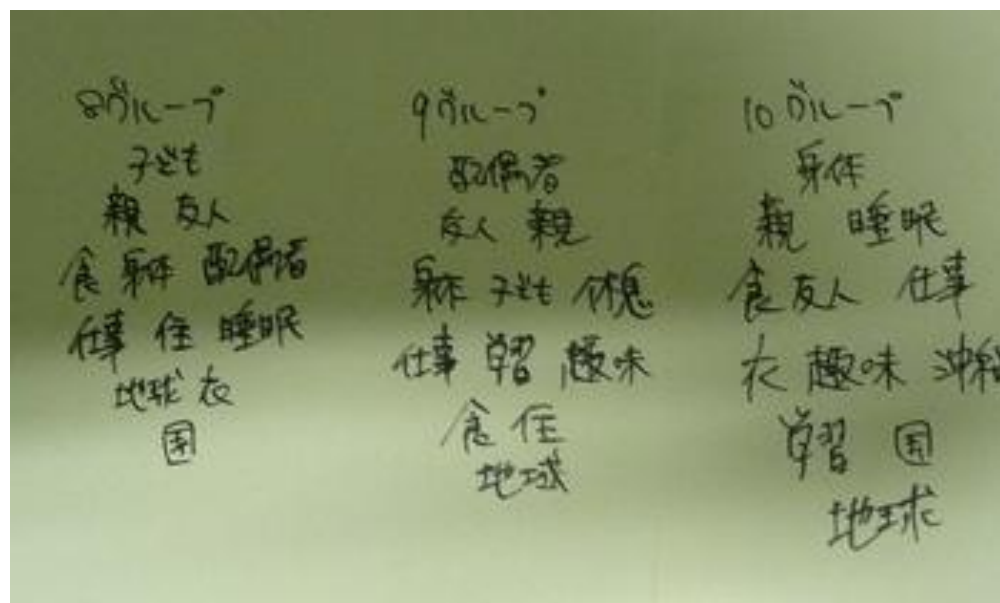 8グループ
子ども
親 友人
食 身体 配偶者
仕事 住 睡眠
地球 衣
国
9グループ
配偶者
友人 親
身体 子ども 休息
仕事 学習 趣味
食 住
地球
10グループ
身体
親 睡眠
食 友人 仕事
衣 趣味
学習 国
地球